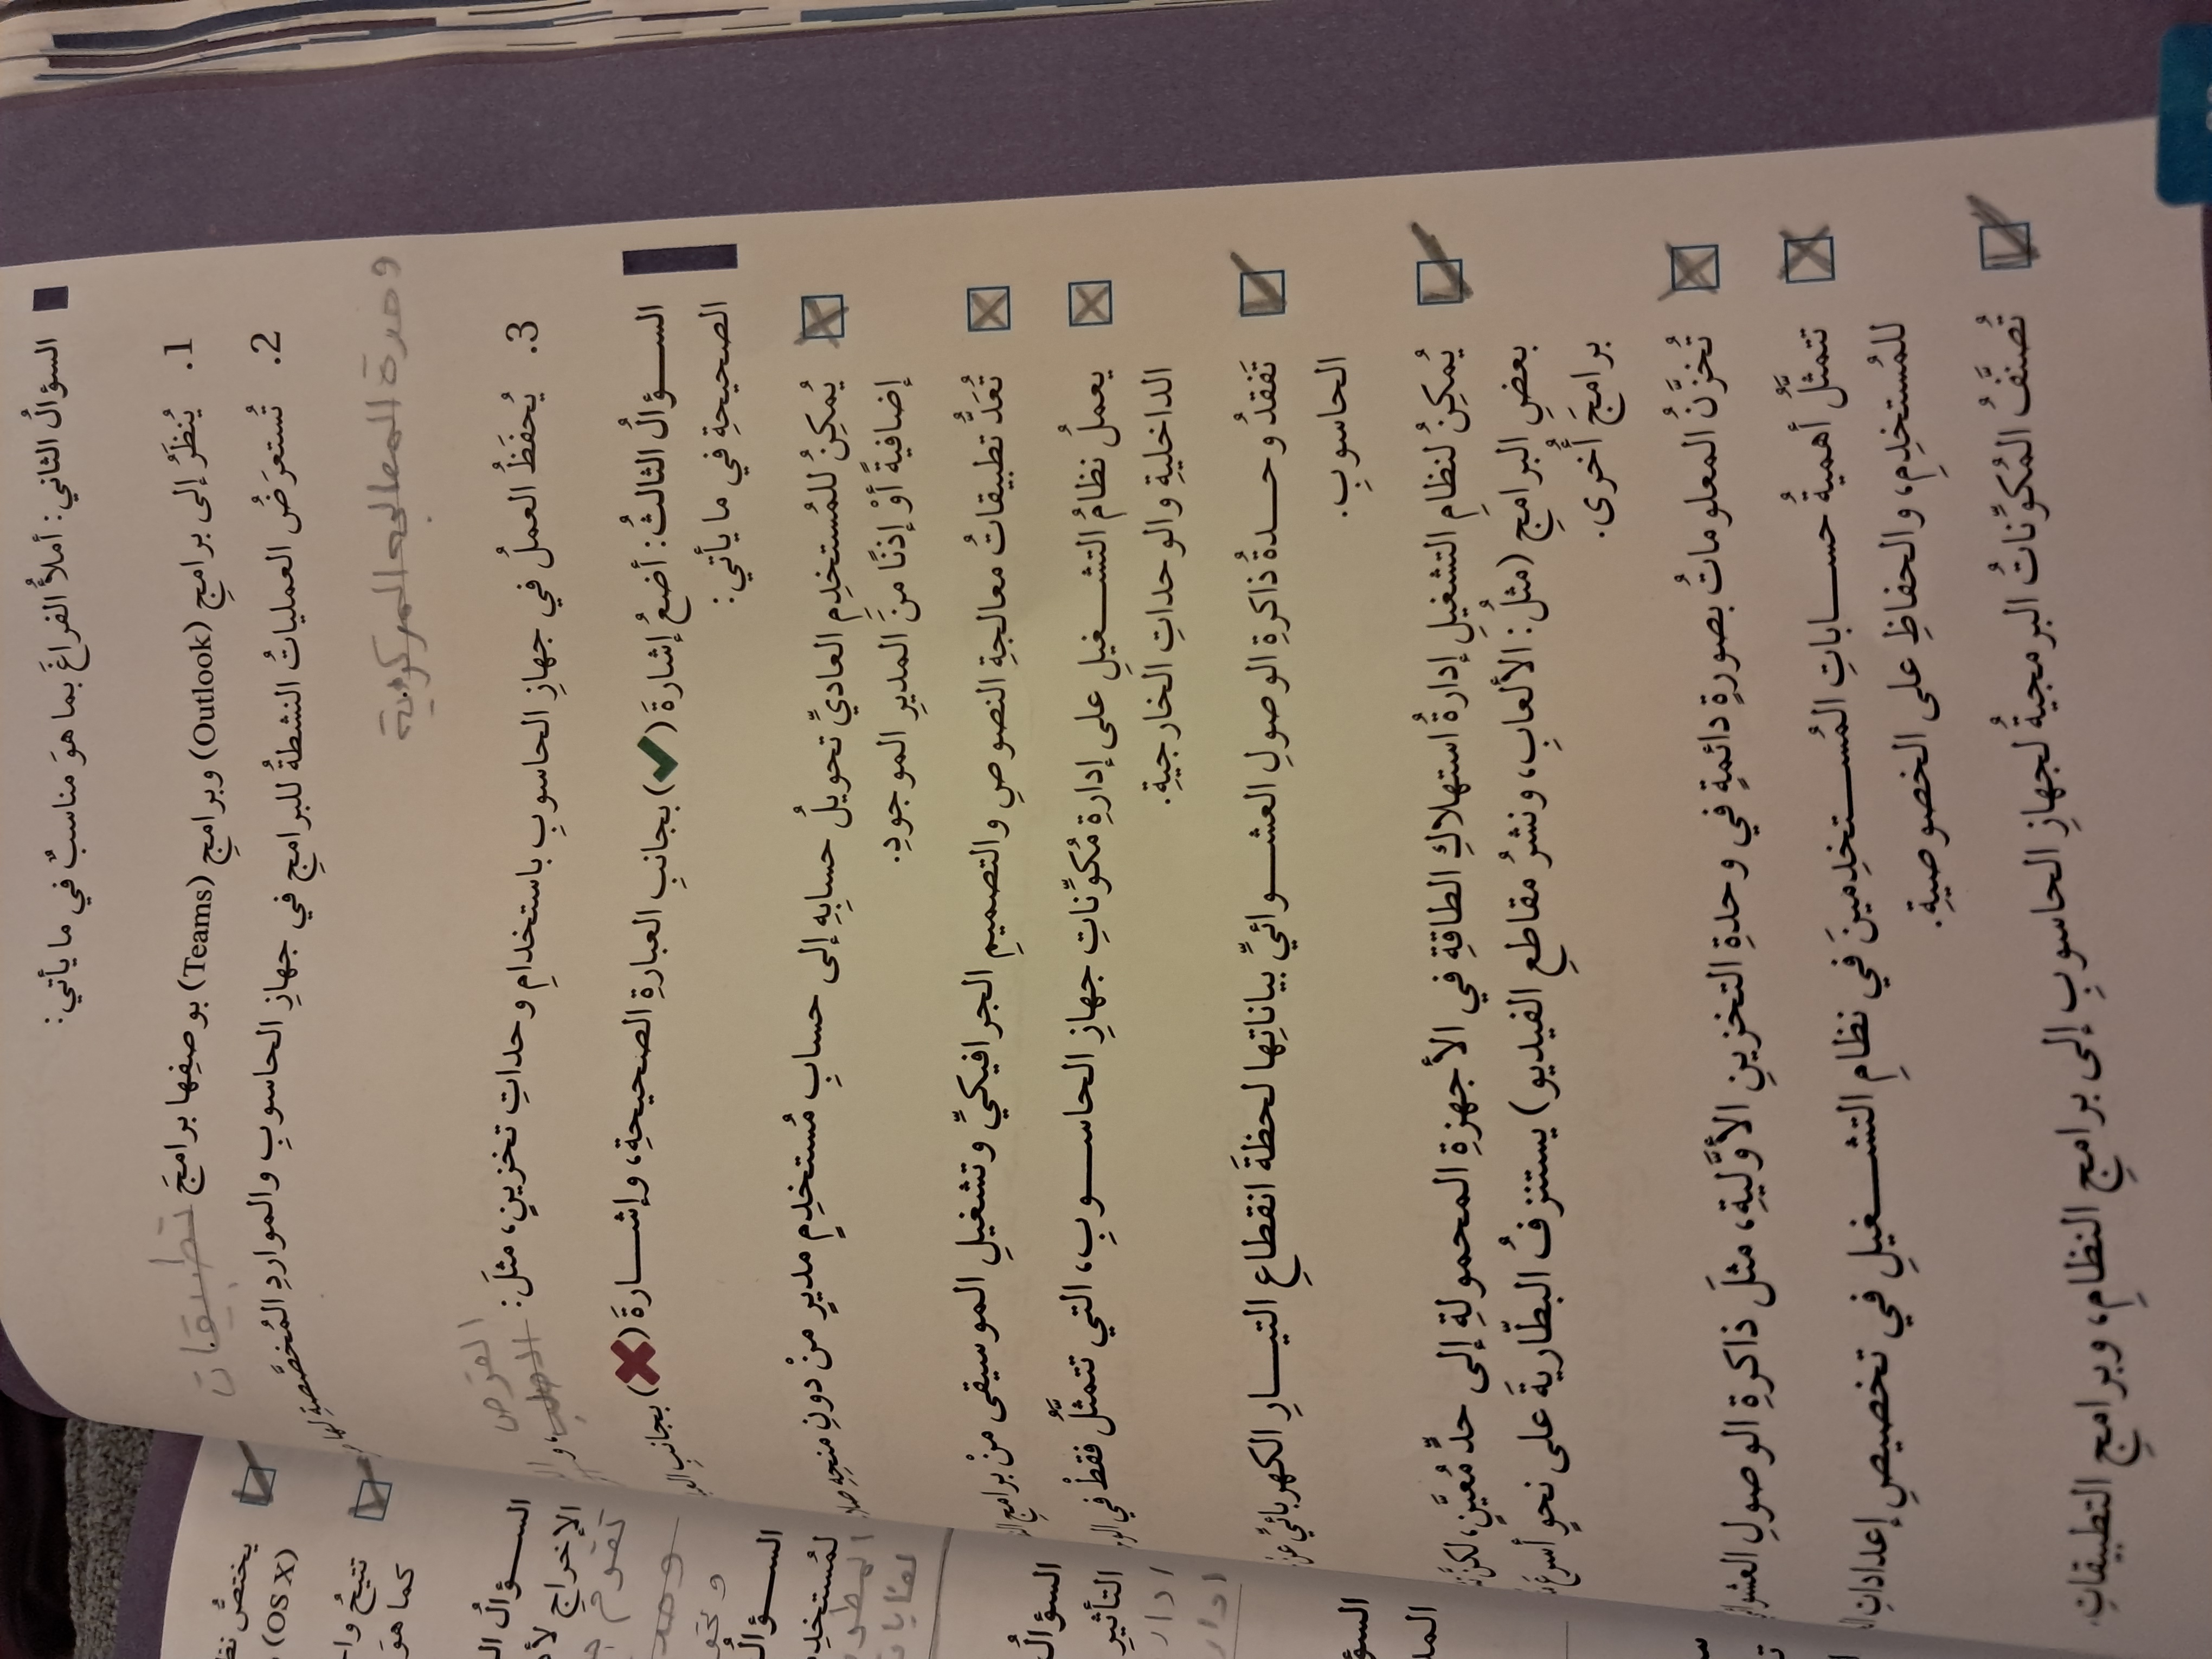 السؤالُ الثاني: أملأُ الفراغَ بما هوَ مناسبٌ في ما يأتي:
1. يُنظَرُ إلى برامجِ (Outlook) وبرامجِ (Teams) بوصفِها برامجَ تطبيقات
2. تُستعرَضُ العملياتُ النشطةُ للبرامجِ في جهازِ الحاسوبِ والمواردِ المُخصَّصةِ لها
وحدة المعالجة المركزية
3. يُحفَظُ العملُ في جهازِ الحاسوبِ باستخدامِ وحداتِ تخزينٍ، مثلَ: القرص
السؤالُ الثالثُ: أضعُ إشارةَ (✓) بجانبِ العبارةِ الصحيحةِ، وإشارةَ (✗) بجانبِ
الصحيحةِ في ما يأتي:
☒ يُمكِنُ للمُستخدِمِ العاديِّ تحويلُ حسابِهِ إلى حسابِ مُستخدِمٍ مديرٍ منْ دونِ منحِهِ
إضافيةً أوْ إذنًا منَ المديرِ الموجودِ.
☒ تُعَدُّ تطبيقاتُ معالجةِ النصوصِ والتصميمِ الجرافيكيِّ وتشغيلِ الموسيقى منْ برامجِ
☒ يعملُ نظامُ التشغيلِ على إدارةِ مُكوِّناتِ جهازِ الحاسوبِ، التي تتمثَّلُ فقطْ في
الداخليةِ والوحداتِ الخارجيةِ.
☑ تَفقدُ وحدةُ ذاكرةِ الوصولِ العشوائيِّ بياناتِها لحظةَ انقطاعِ التيارِ الكهربائيِّ عنْ
الحاسوبِ.
☑ يُمكِنُ لنظامِ التشغيلِ إدارةُ استهلاكِ الطاقةِ في الأجهزةِ المحمولةِ إلى حدٍّ مُعيَّنٍ، لكنَّ
بعضِ البرامجِ (مثلُ: الألعابِ، ونشرُ مقاطعِ الفيديو) يستنزفُ البطّاريةَ على نحوٍ أسرعَ
برامجَ أُخرى.
☒ تُخزَّنُ المعلوماتُ بصورةٍ دائمةٍ في وحدةِ التخزينِ الأوَّليةِ، مثلَ ذاكرةِ الوصولِ
☒ تتمثَّلُ أهميةُ حساباتِ المُستخدِمينَ في نظامِ التشغيلِ في تخصيصِ إعداداتِ
للمُستخدِمِ، والحفاظِ على الخصوصيةِ.
☑ تُصنَّفُ المُكوِّناتُ البرمجيةُ لجهازِ الحاسوبِ إلى برامجِ النظامِ، وبرامجِ التطبيقاتِ.
☑ يختصُّ
(OS X)
☑ تتيحُ
كما هوَ
السؤالُ
الإخراجِ
تقوم
السؤالُ
السؤالُ
التأثيرِ